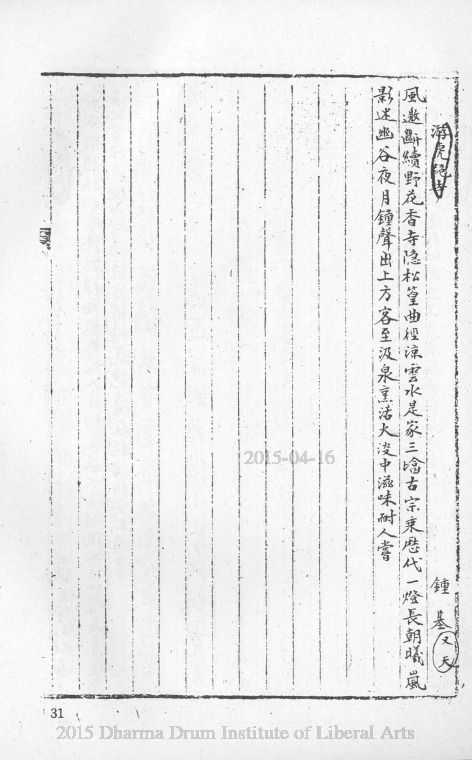 游虎跑寺 鍾基又天
風邀斷續野花香寺隐松篁曲徑涼雲水是家三塔古宗乘歷代一燈長朝曦嵐
影迷幽谷夜月鍾聲出上方客至汲泉烹活火淡中滋味耐人嘗
2015-04-16
31
2015 Dharma Drum Institute of Liberal Arts